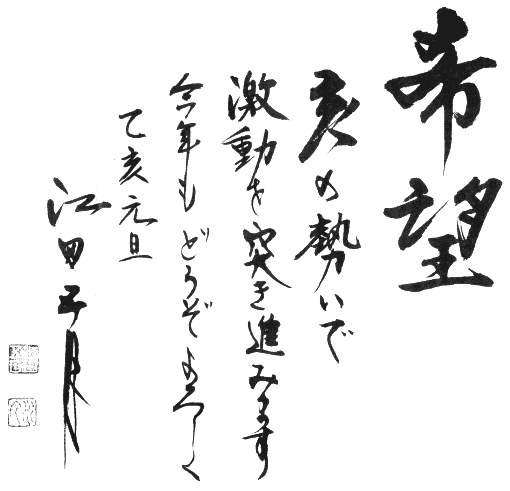 希望
亥の勢いで
激動を突き進みます
今年もどうぞよろしく
乙亥元旦
江田五月